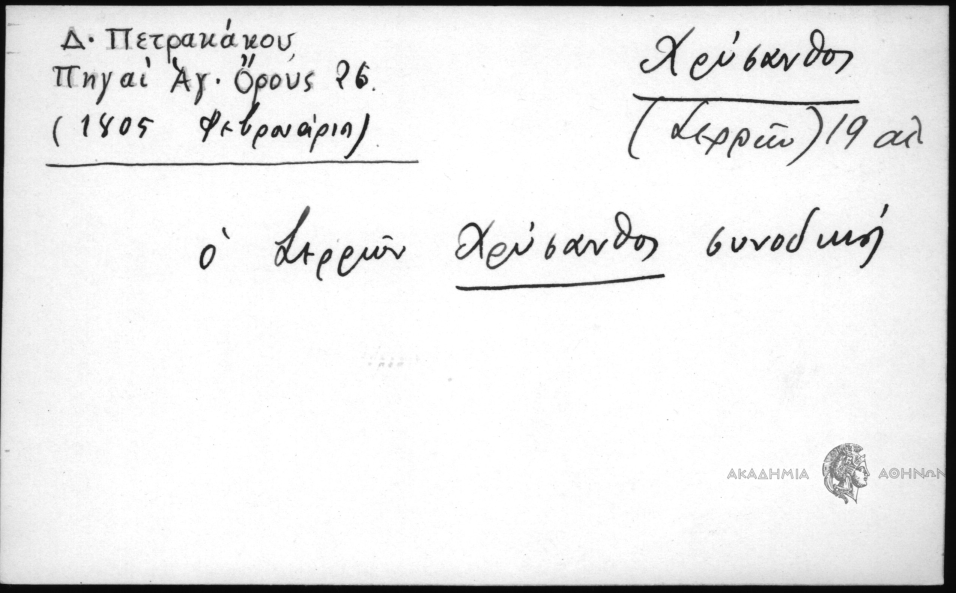 Δ. Πετρακάκου
Πηγαὶ Ἁγ. Ὄρους 26.
(1805 Φεβρουάριος)
Χρύσανθος
(Σερρῶν) 19 αἰ
ὁ Σερρῶν Χρύσανθος συνοδικὴ
ΑΚΑΔΗΜΙΑ ΑΘΗΝΩΝ